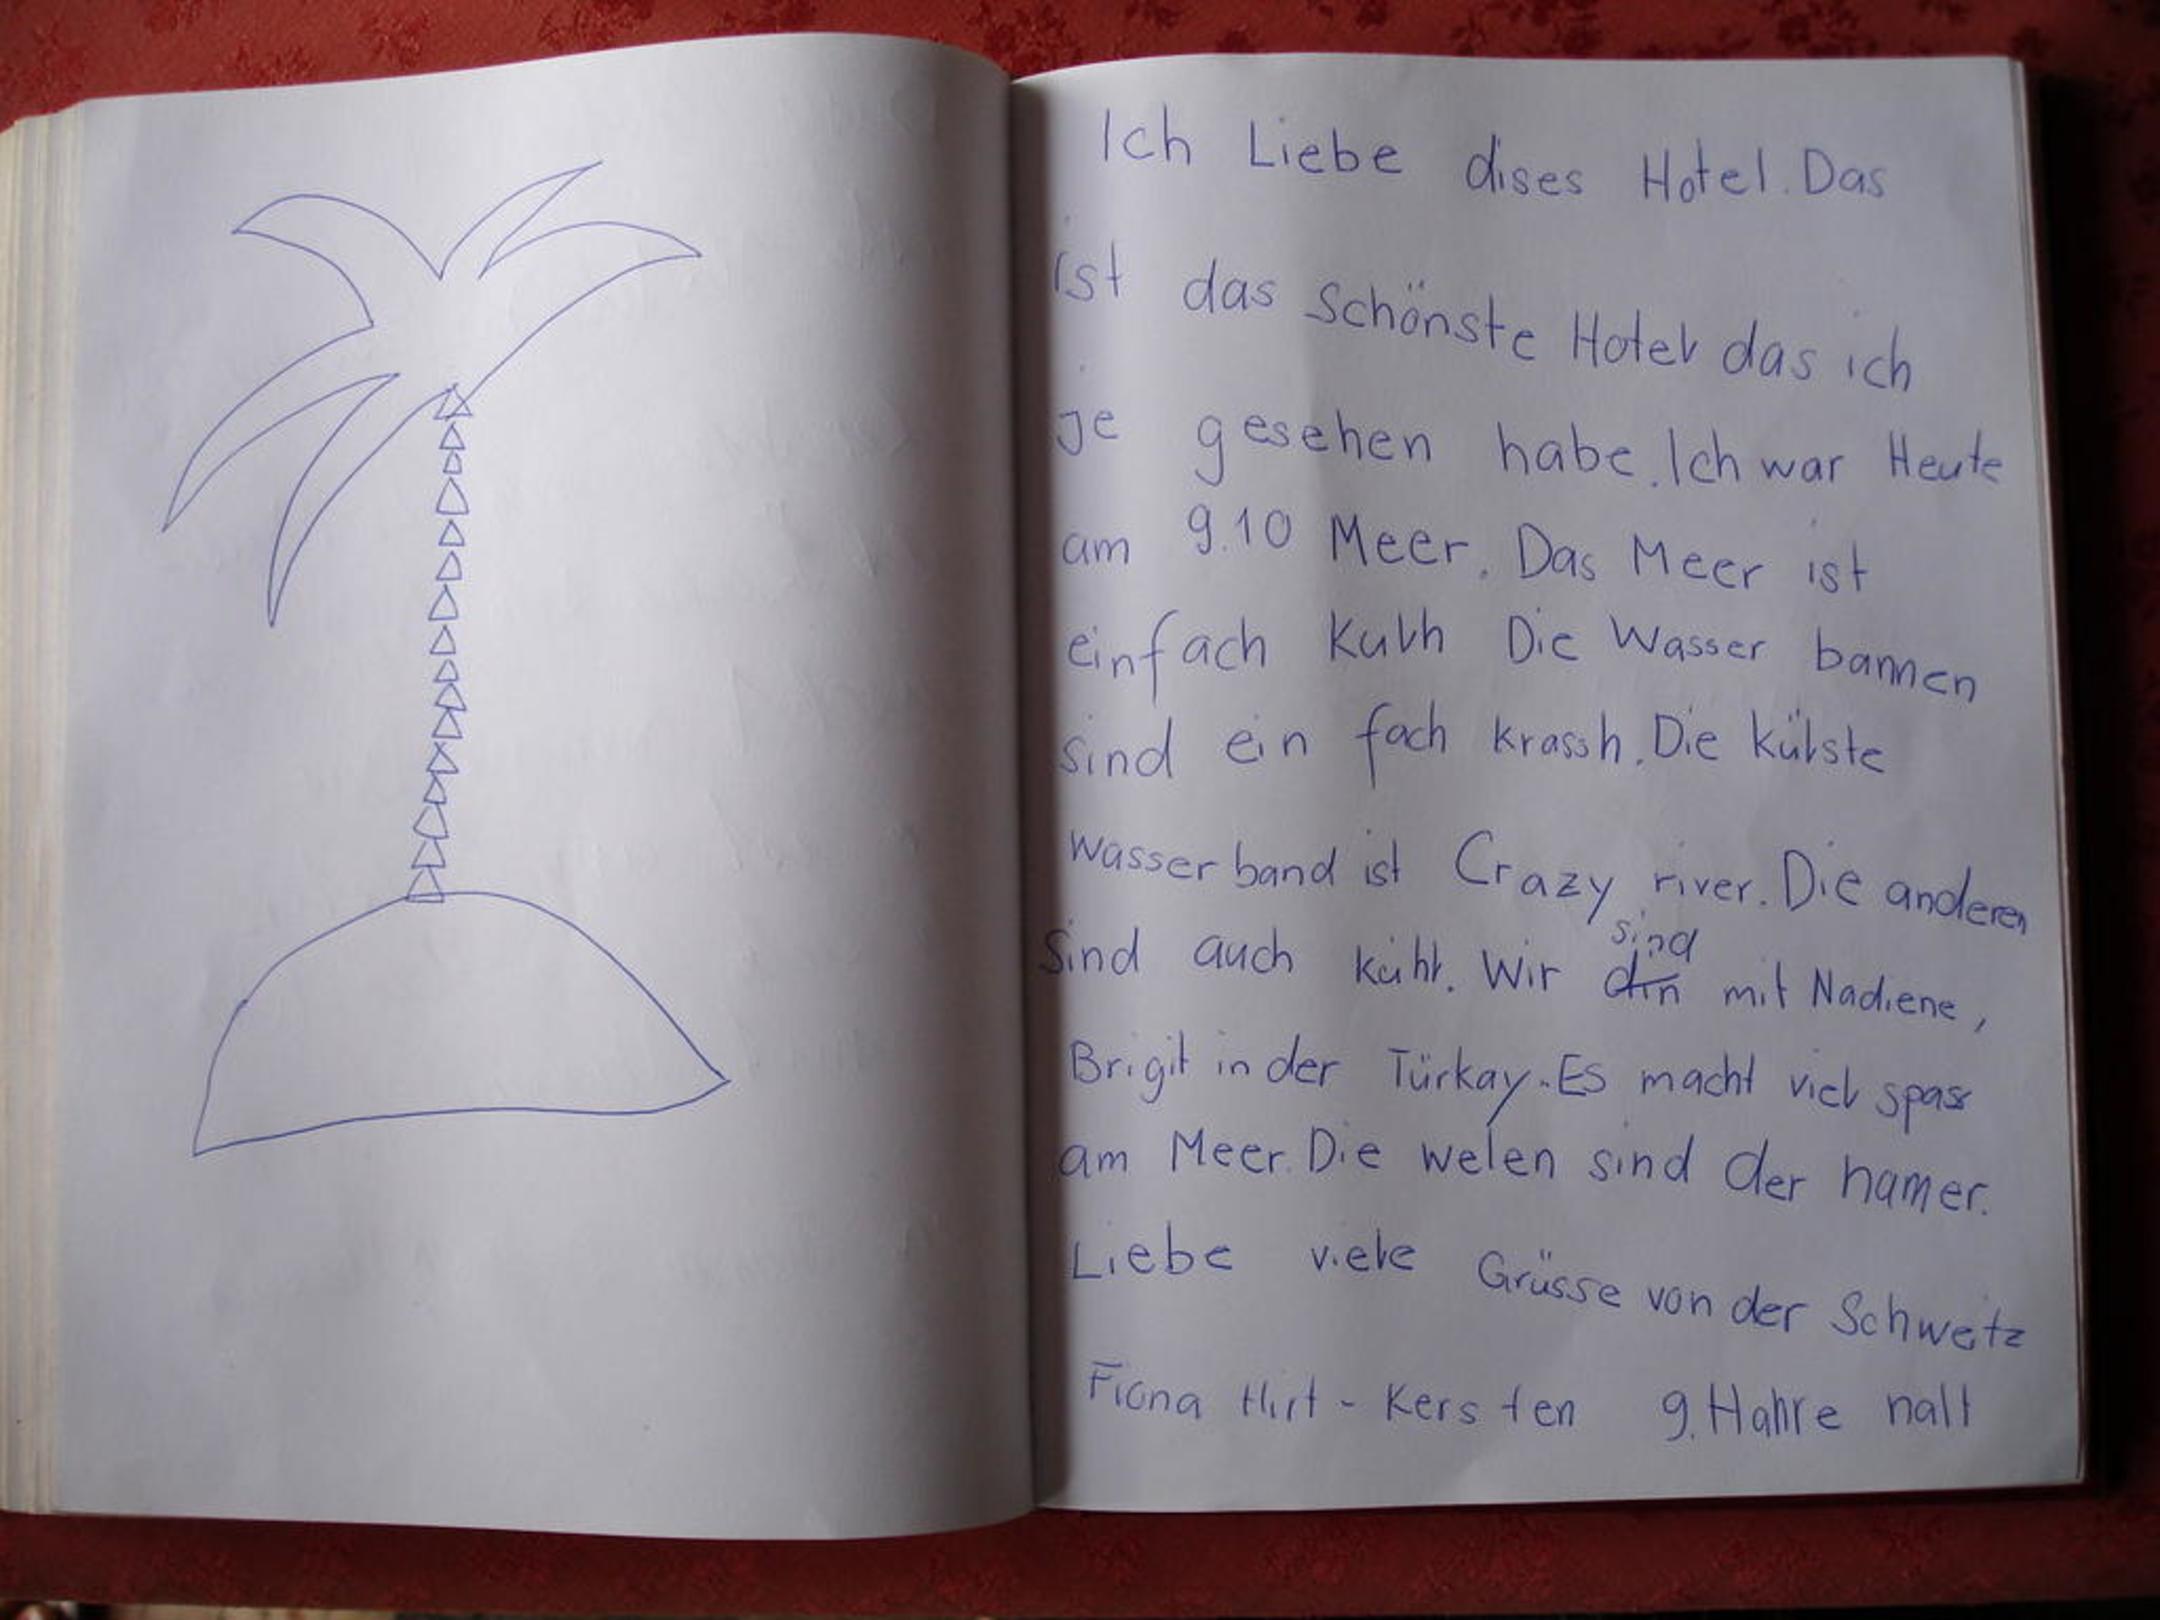 Ich Liebe dises Hotel. Das
ist das Schönste Hotel das ich
je gesehen habe. Ich war Heute
am 9.10 Meer. Das Meer ist
einfach Kulh Die Wasser bannen
sind ein fach krassh. Die külste
wasser band ist Crazy river. Die anderen
sind auch kühl. Wir sind mit Nadiene,
Brigit in der Türkay. Es macht viel spass
am Meer. Die welen sind der hamer.
Liebe viele Grüsse von der Schweitz
Fiona Hirt - Kersten 9. Hahre nalt